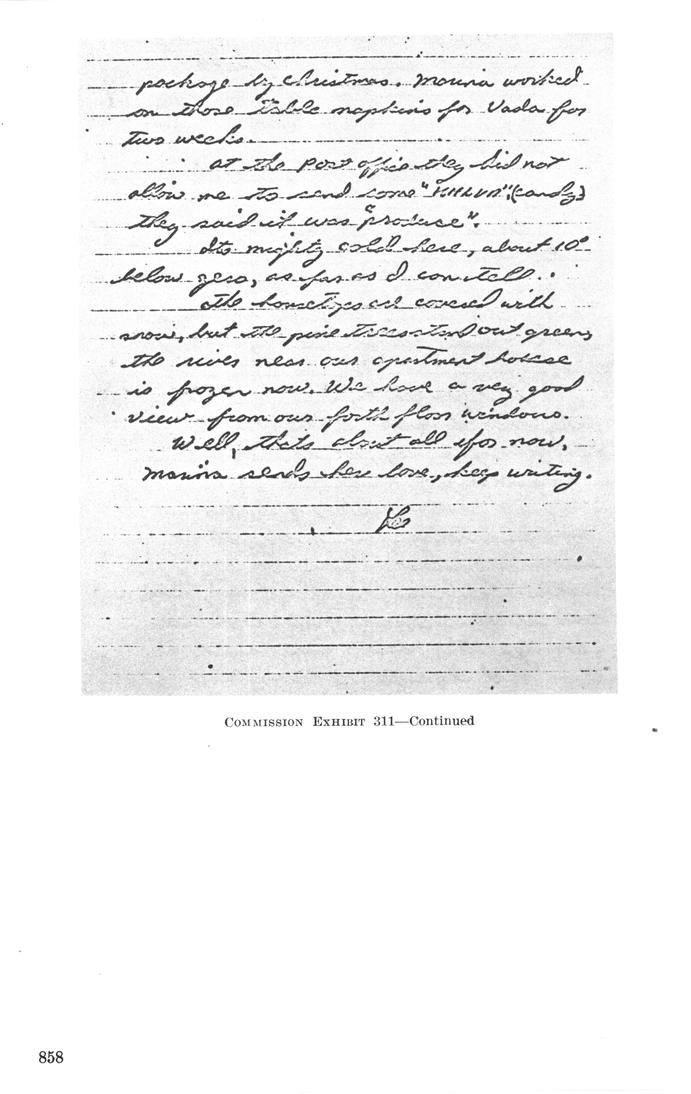 package by christmas. Marina worked
on those table napkins for Vada for
two weeks.
at the post office they did not
allow me to send some "HALVA", (candy)
they said it was "produce".
Its mighty cold here, about 10°
below zero, as far as I can tell.
the are covered with
snow, but the pine trees stand out green,
the river near our apartment house
is frozen now. We have a very good
view from our forth floor windows.
Well, thats about all for now,
Marina sends her love, keep writing.
Lee
COMMISSION EXHIBIT 311—Continued
858